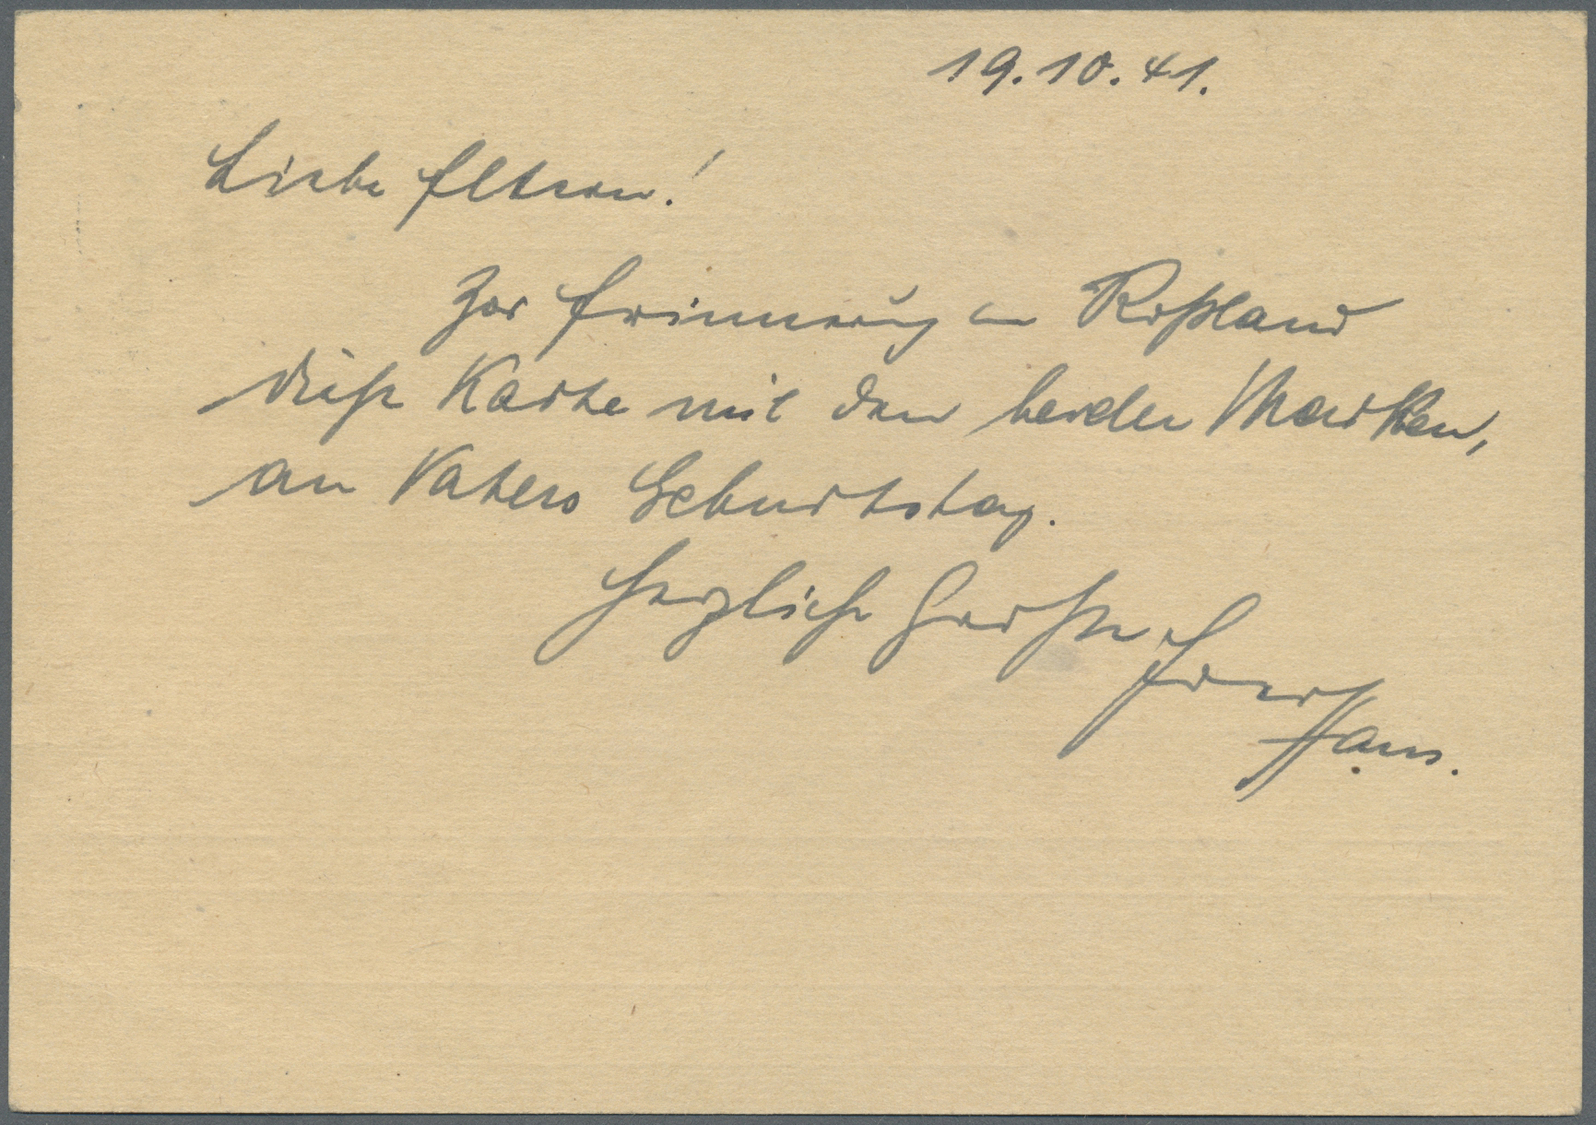 19.10.41.
Liebe Eltern!
Zur Erinnerung an Rußland
diese Karte mit den beiden Marken,
an Vaters Geburtstag.
Herzliche Grüße Euer
Hans.